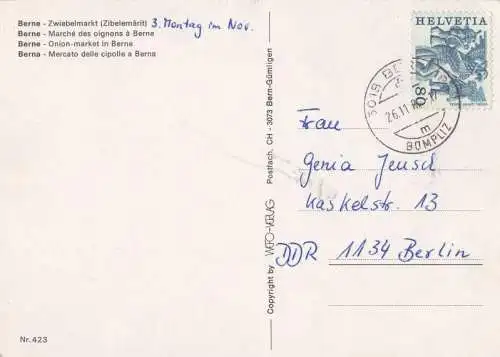 Berne - Zwiebelmarkt (Zibelemärit) 3. Montag im Nov.
Berne - Marché des oignons à Berne
Berne - Onion-market in Berne
Berna - Mercato delle cipolle a Berna
HELVETIA
80
3018 BERN
26.11
m
BÜMPLIZ
Postfach, CH - 3073 Bern-Gümligen
Copyright by WERO-VERLAG
Frau
Genia Jeusch
Kaskelstr. 13
DDR 1134 Berlin
Nr. 423